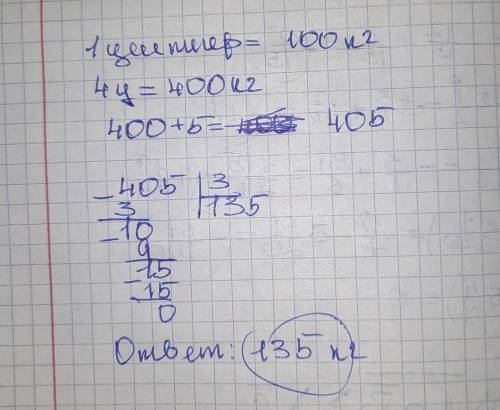 1 центнер = 100 кг
4 ц = 400 кг
400 + 5 = 405
- 405 | 3
3 135
- 10
9
15
- 15
0
Ответ: 135 кг